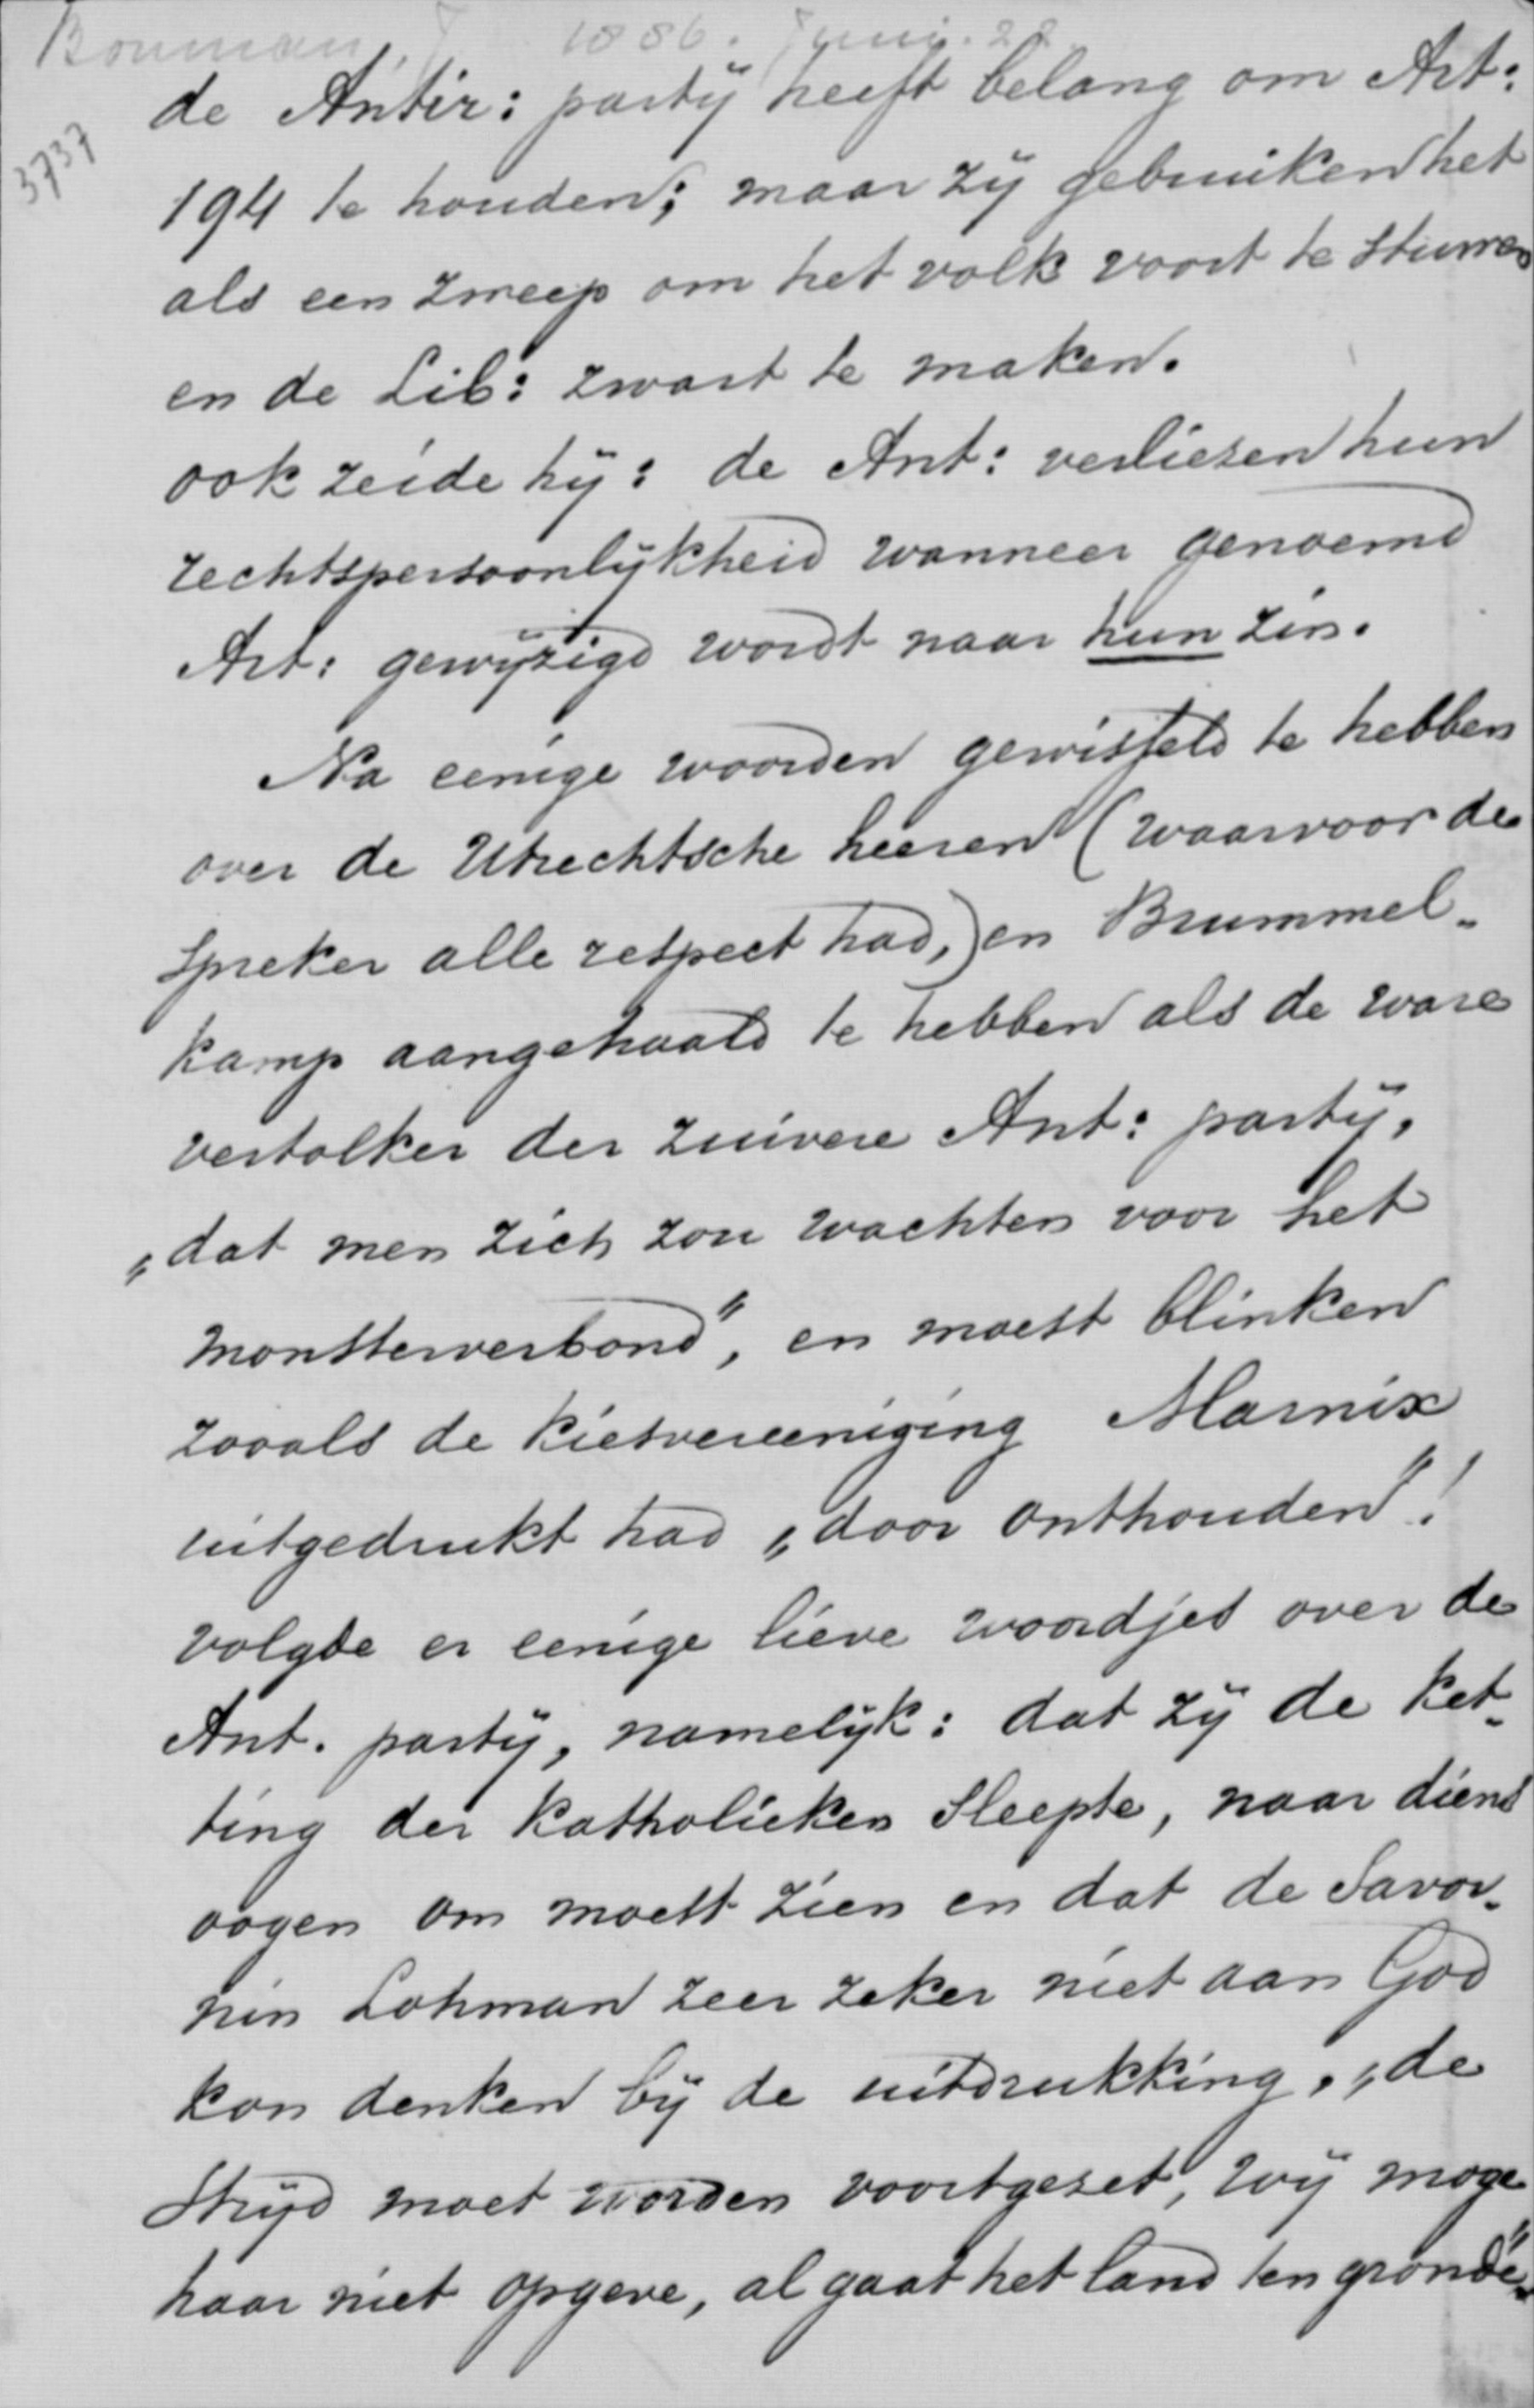 Bouman, J 1886. Juni. 22.
3737
de Antir: partij heeft belang om Art:
194 te houden; maar zij gebruiken het
als een zweep om het volk voort te stuwen
en de Lib: zwart te maken.
ook zeide hij: de Ant: verliezen hun
rechtspersoonlijkheid wanneer genoemd
Art: gewijzigd wordt naar hun zin.
Na eenige woorden gewisseld te hebben
over de Utrechtsche heeren (waarvoor de
spreker alle respect had,) en Brummel-
kamp aangehaald te hebben als de ware
vertolker der zuivere Ant: partij,
„dat men zich zou wachten voor het
monsterverbond", en moest blinken
zooals de kiesvereeniging Marnix
uitgedrukt had „door onthouden"!
volgde er eenige lieve woordjes over de
Ant. partij, namelijk: dat zij de ket-
ting der Katholieken sleepte, naar diens
oogen om moest zien en dat de Savor-
nin Lohman zeer zeker niet aan God
kon denken bij de uitdrukking, „de
Strijd moet worden voortgezet, wij moge
haar niet opgeve, al gaat het land ten gronde".